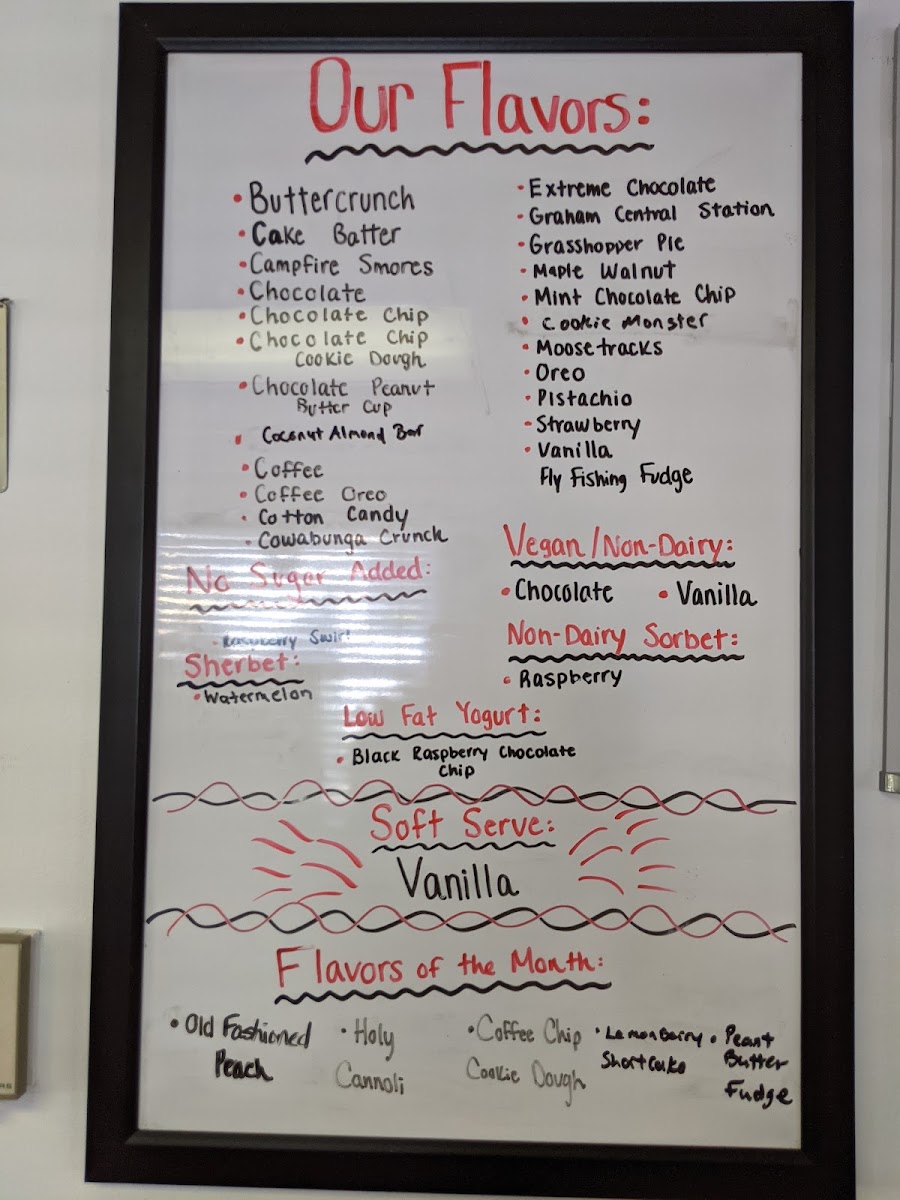 Our Flavors:
• Buttercrunch
• Cake Batter
• Campfire Smores
• Chocolate
• Chocolate Chip
• Chocolate Chip
Cookie Dough
• Chocolate Peanut
Butter Cup
• Coconut Almond Bar
• Coffee
• Coffee Oreo
• Cotton Candy
• Cowabunga Crunch
No Sugar Added:
• Raspberry Swirl
Sherbet:
• Watermelon
• Extreme Chocolate
• Graham Central Station
• Grasshopper Pie
• Maple Walnut
• Mint Chocolate Chip
• Cookie Monster
• Moosetracks
• Oreo
• Pistachio
• Strawberry
• Vanilla
Fly Fishing Fudge
Vegan/Non-Dairy:
• Chocolate • Vanilla
Non-Dairy Sorbet:
• Raspberry
Low Fat Yogurt:
• Black Raspberry Chocolate
Chip
Soft Serve:
Vanilla
Flavors of the Month:
• Old Fashioned
Peach
• Holy
Cannoli
• Coffee Chip
Cookie Dough
• LemonBerry
Shortcake
• Peant
Butter
Fudge